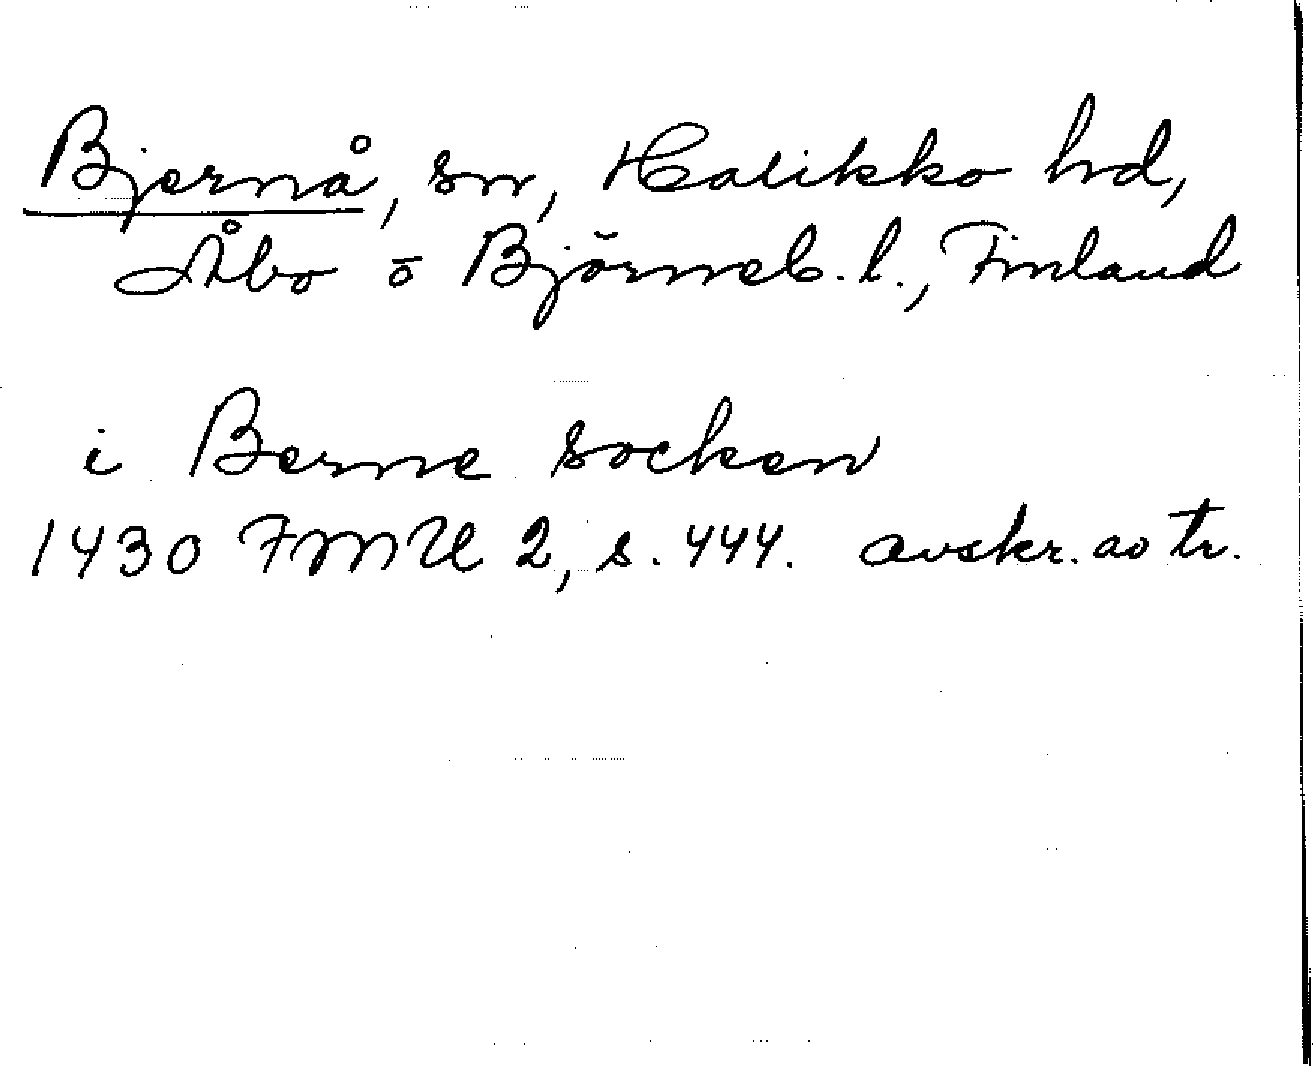 Bjernå, sn, Halikko hd,
Åbo o Björneb. l., Finland
i Berne socken
1430 FMU 2, s. 444. avskr. ao tr.